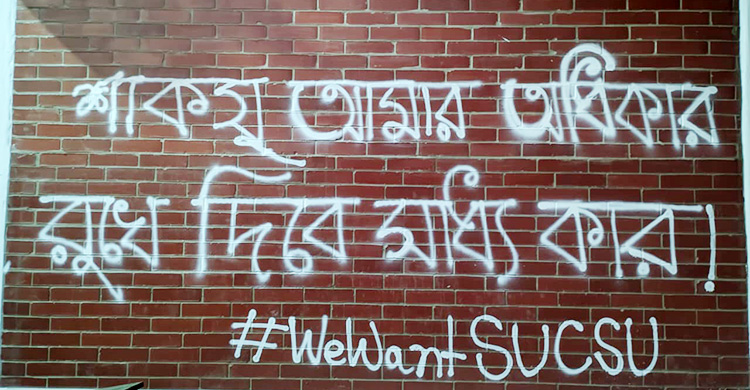 শাকসু আমার অধিকার
রুখে দিবে সাধ্যি কার!
#WeWantSUCSU